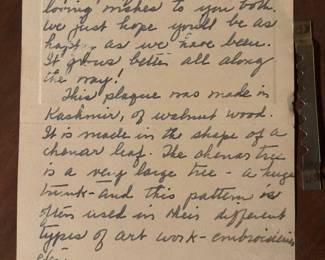 loving wishes to you both.
We just hope you'll be as
happy as we have been.
It grows better all along
the way!
This plaque was made in
Kashmir, of walnut wood.
It is made in the shape of a
chenar leaf. The chenar tree
is a very large tree - a huge
trunk - and this pattern is
often used in their different
types of art work - embroideries
etc.